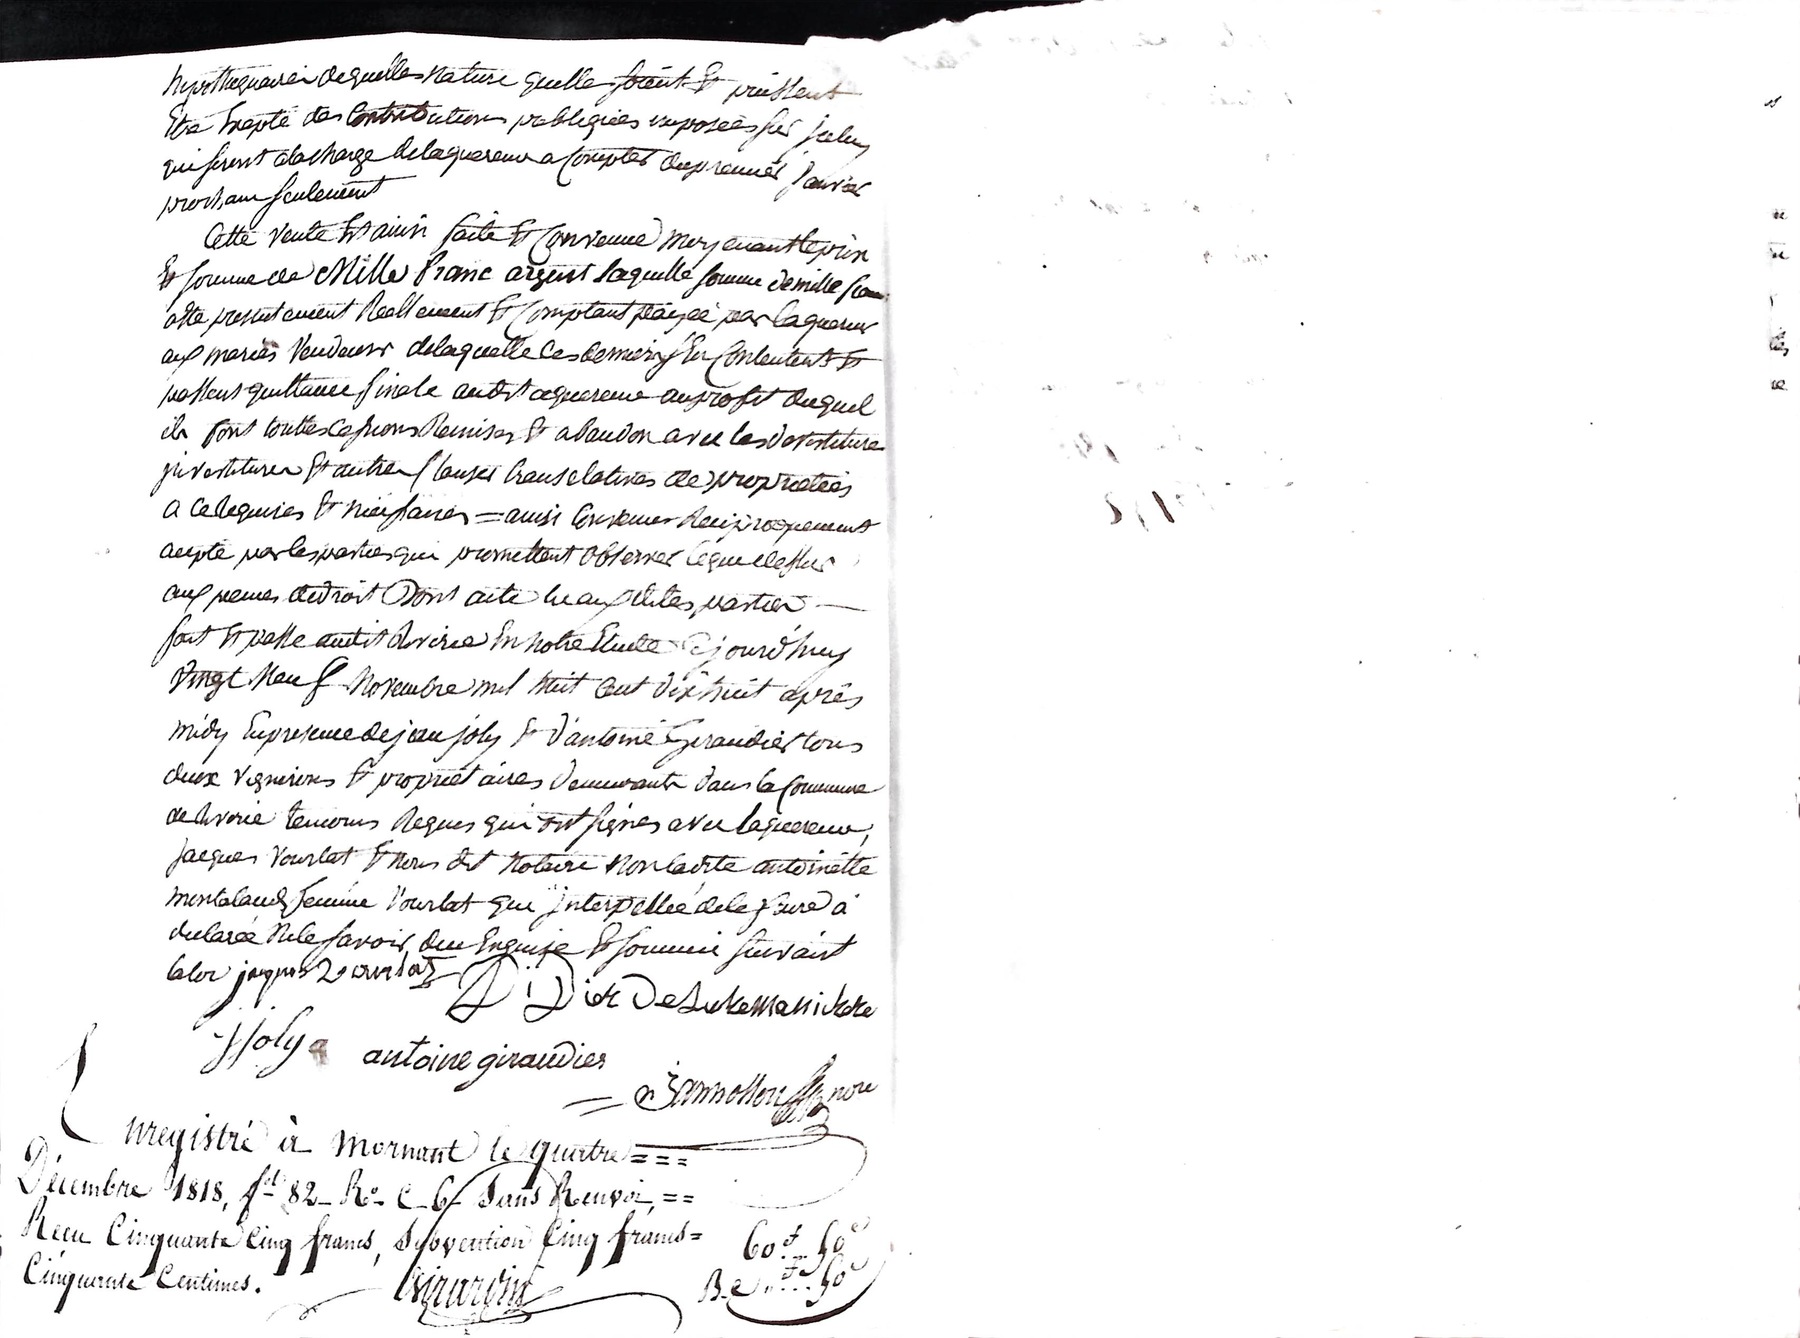 hypothequaires de quelles nature quelle soient Et puissent
Etre Excepté des Contributions publiques imposées sur Jceluy
qui seront alacharge delaquereur a Compter du premier Janvier
prochain seulement
Cette vente Est ainsi faite Et Convenue Moyenant le prix
Et somme de Mille franc argent laquelle somme de mille franc
a été presentement Reellement Et Comptant páyée par laquereur
aux mariés Vendeurs delaquelle ces derniers s'En Contentent Et
passent quittance finale audit aquereur au profit duquel
ils font touttes Cessions Remises Et abandon avec les devestiture
jnvestitures Et autres Clauses translatives de propriétés
a ce Requises Et nécéssaires = ainsi Convenu Réciproquement
acepté par les parties qui promettent observer ce que dessus
aux peines de droit Dont acte lu aux dites parties —
fait Et passé audit Riverie En notre Etude Cejourd'huy
Vingt Neuf Novembre mil huit Cent dix huit aprés
midy En presence de jean joly Et d'antoine Giraudier tous
deux vignerons Et propriétaires demeurants dans la Commune
de Riverie temoins Requis qui ont signés avec laquereur,
Jacques Vourlat Et Nous dit Notaire Non ladite antoinette
montaland femme Vourlat qui jnterpellée de le faire a
declarée Ne le savoir, de ce Enquise Et sommée suivant
la loi jaques Vourlat
Didier De
jjoly antoine giraudier
nore
Enregistré à Mornant le quatre ===
Décembre 1818, fol 82 Ro C 6 Sans Renvoi, ==
Recu Cinquante Cinq francs, Subvention Cinq francs =
Cinquante Centimes.
60 f 50 c
50 c
Girardin